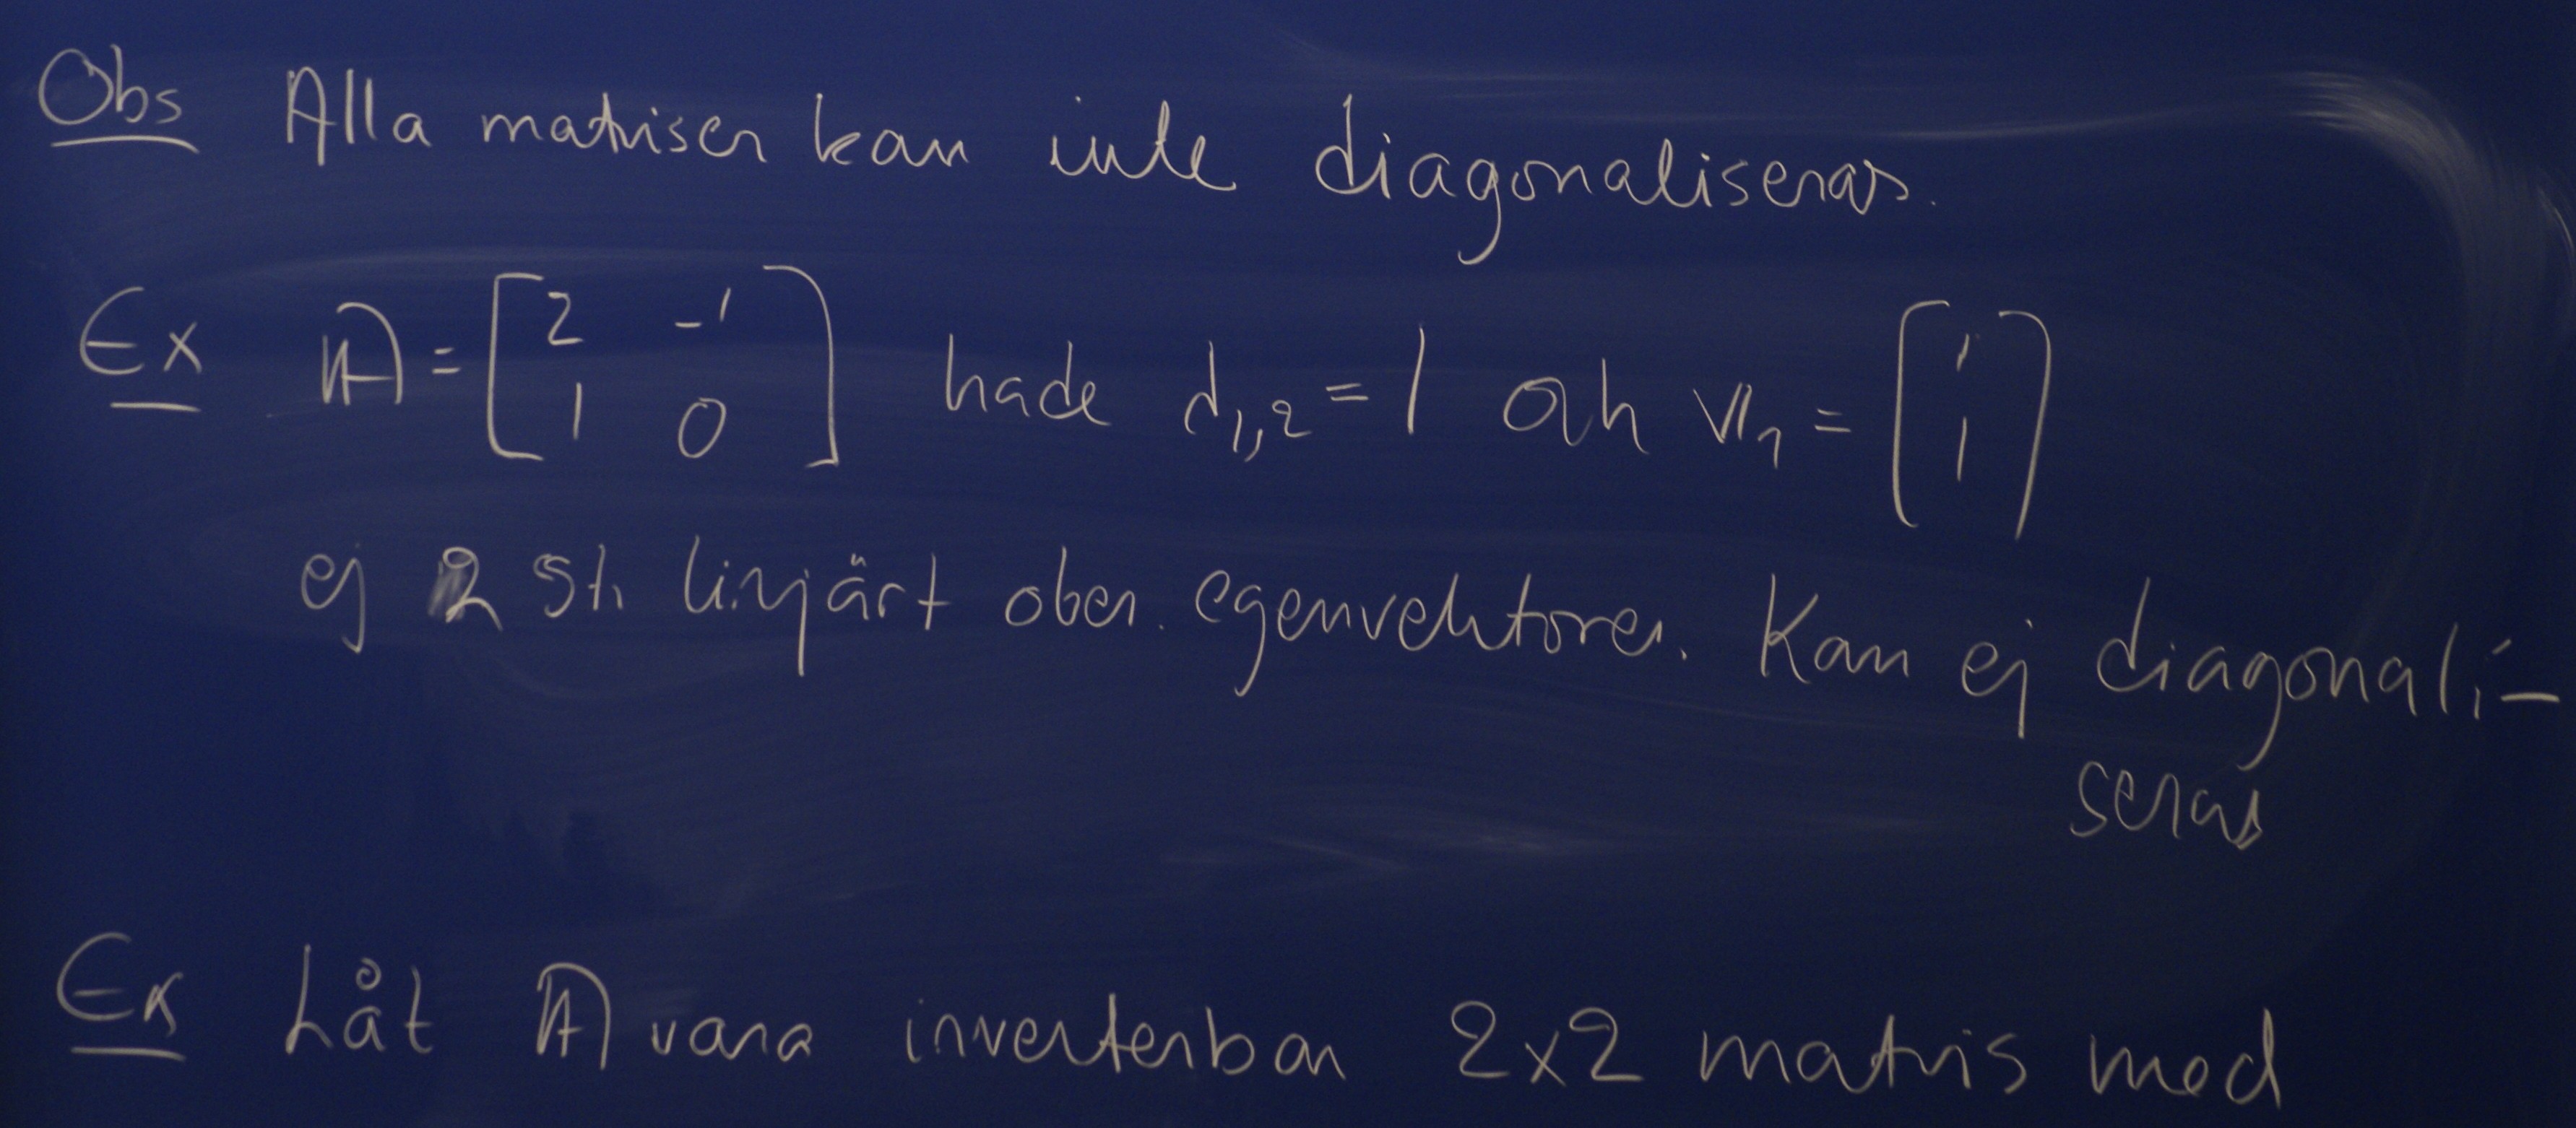 Obs Alla matriser kan inte diagonaliseras.
Ex A = [2 -1; 1 0] hade d₁,₂ = 1 och v₁ = [1; 1]
ej 2 st. linjärt ober. egenvektorer. Kan ej diagonali-
seras
Ex Låt A vara inverterbar 2x2 matris med